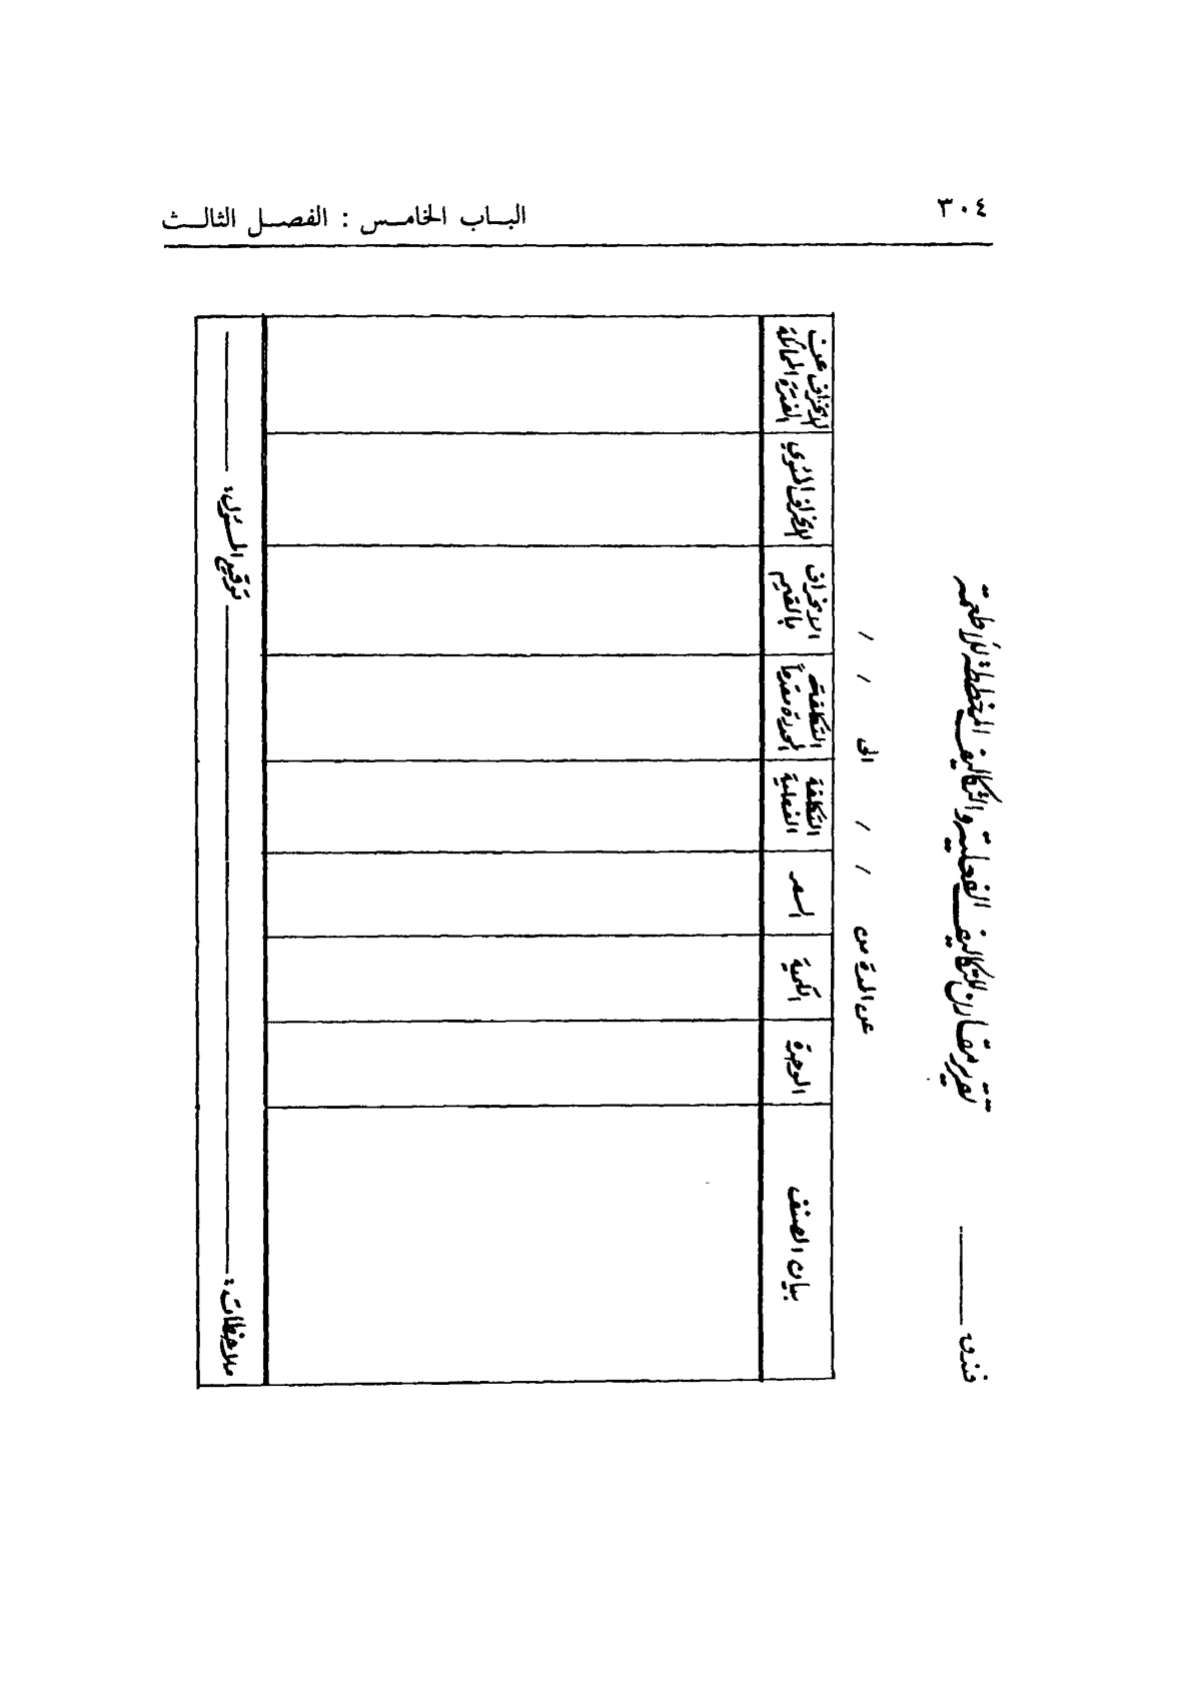 ٣٠٤
البـاب الخامـس : الفصـل الثالـث
فندق
تقرير مقارن للتكاليف الفعلية والتكاليف المخططة للأطعمة
عن المدة من / / الى / /
بيان الصنف
الوحدة
الكمية
السعر
التكلفة الفعلية
التكلفة المحددة مقدماً
الانحراف بالقيم
الانحراف المئوي
الانحراف عن الفترة المماثلة
ملاحظات :
توقيع المسئول :